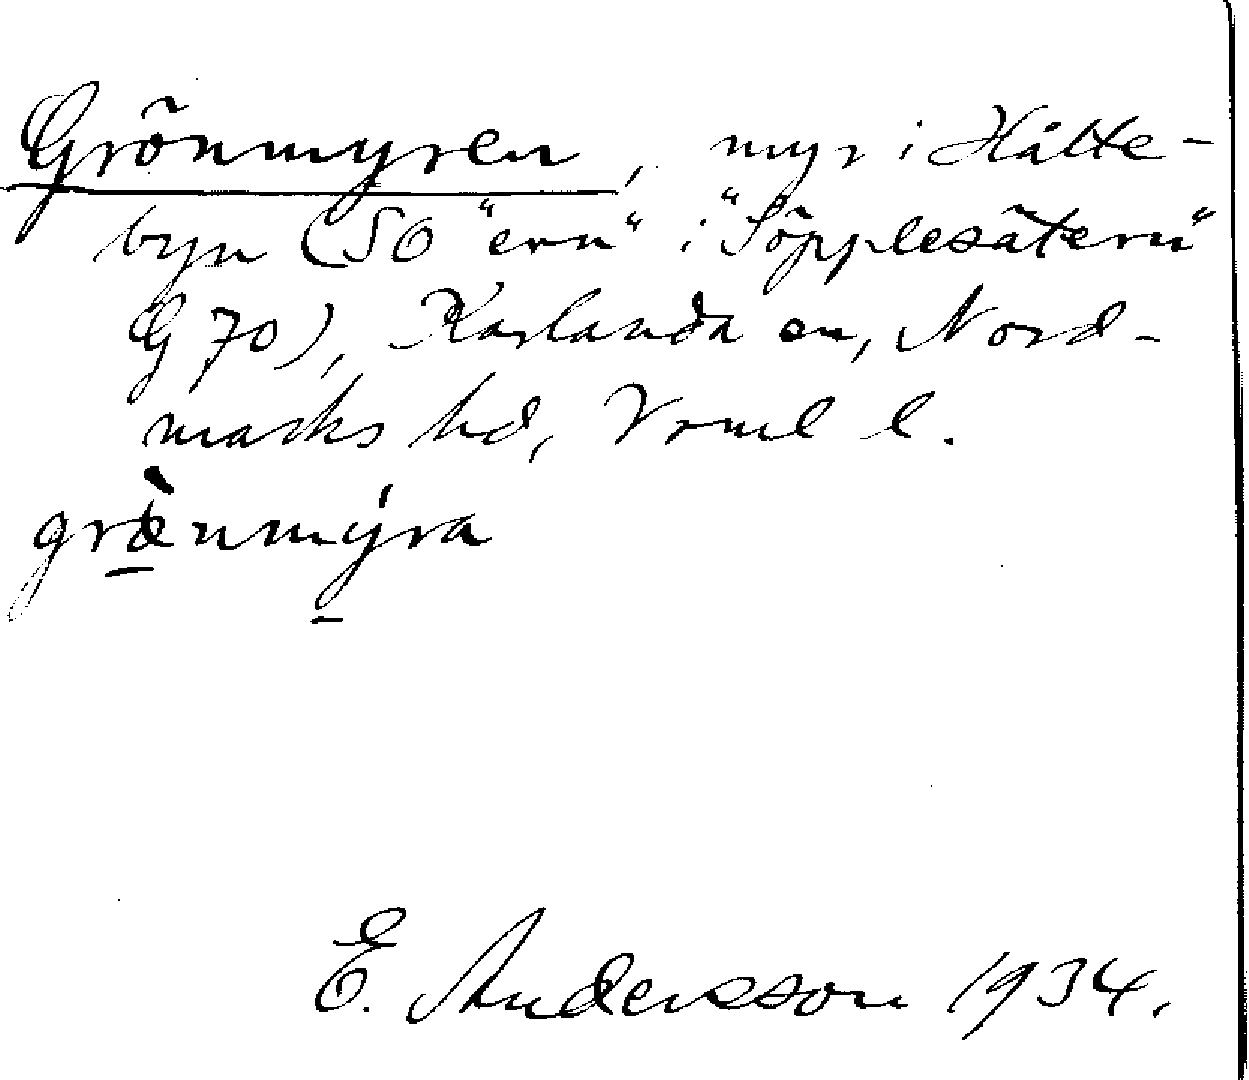 Grönmyren, myr i Hålte-
byn (SO "ern" i "Söpplesätern"
G 70), Karlanda sn, Nord-
marks hd, Vrml l.
grœ̀nmýra
E. Andersson 1934.